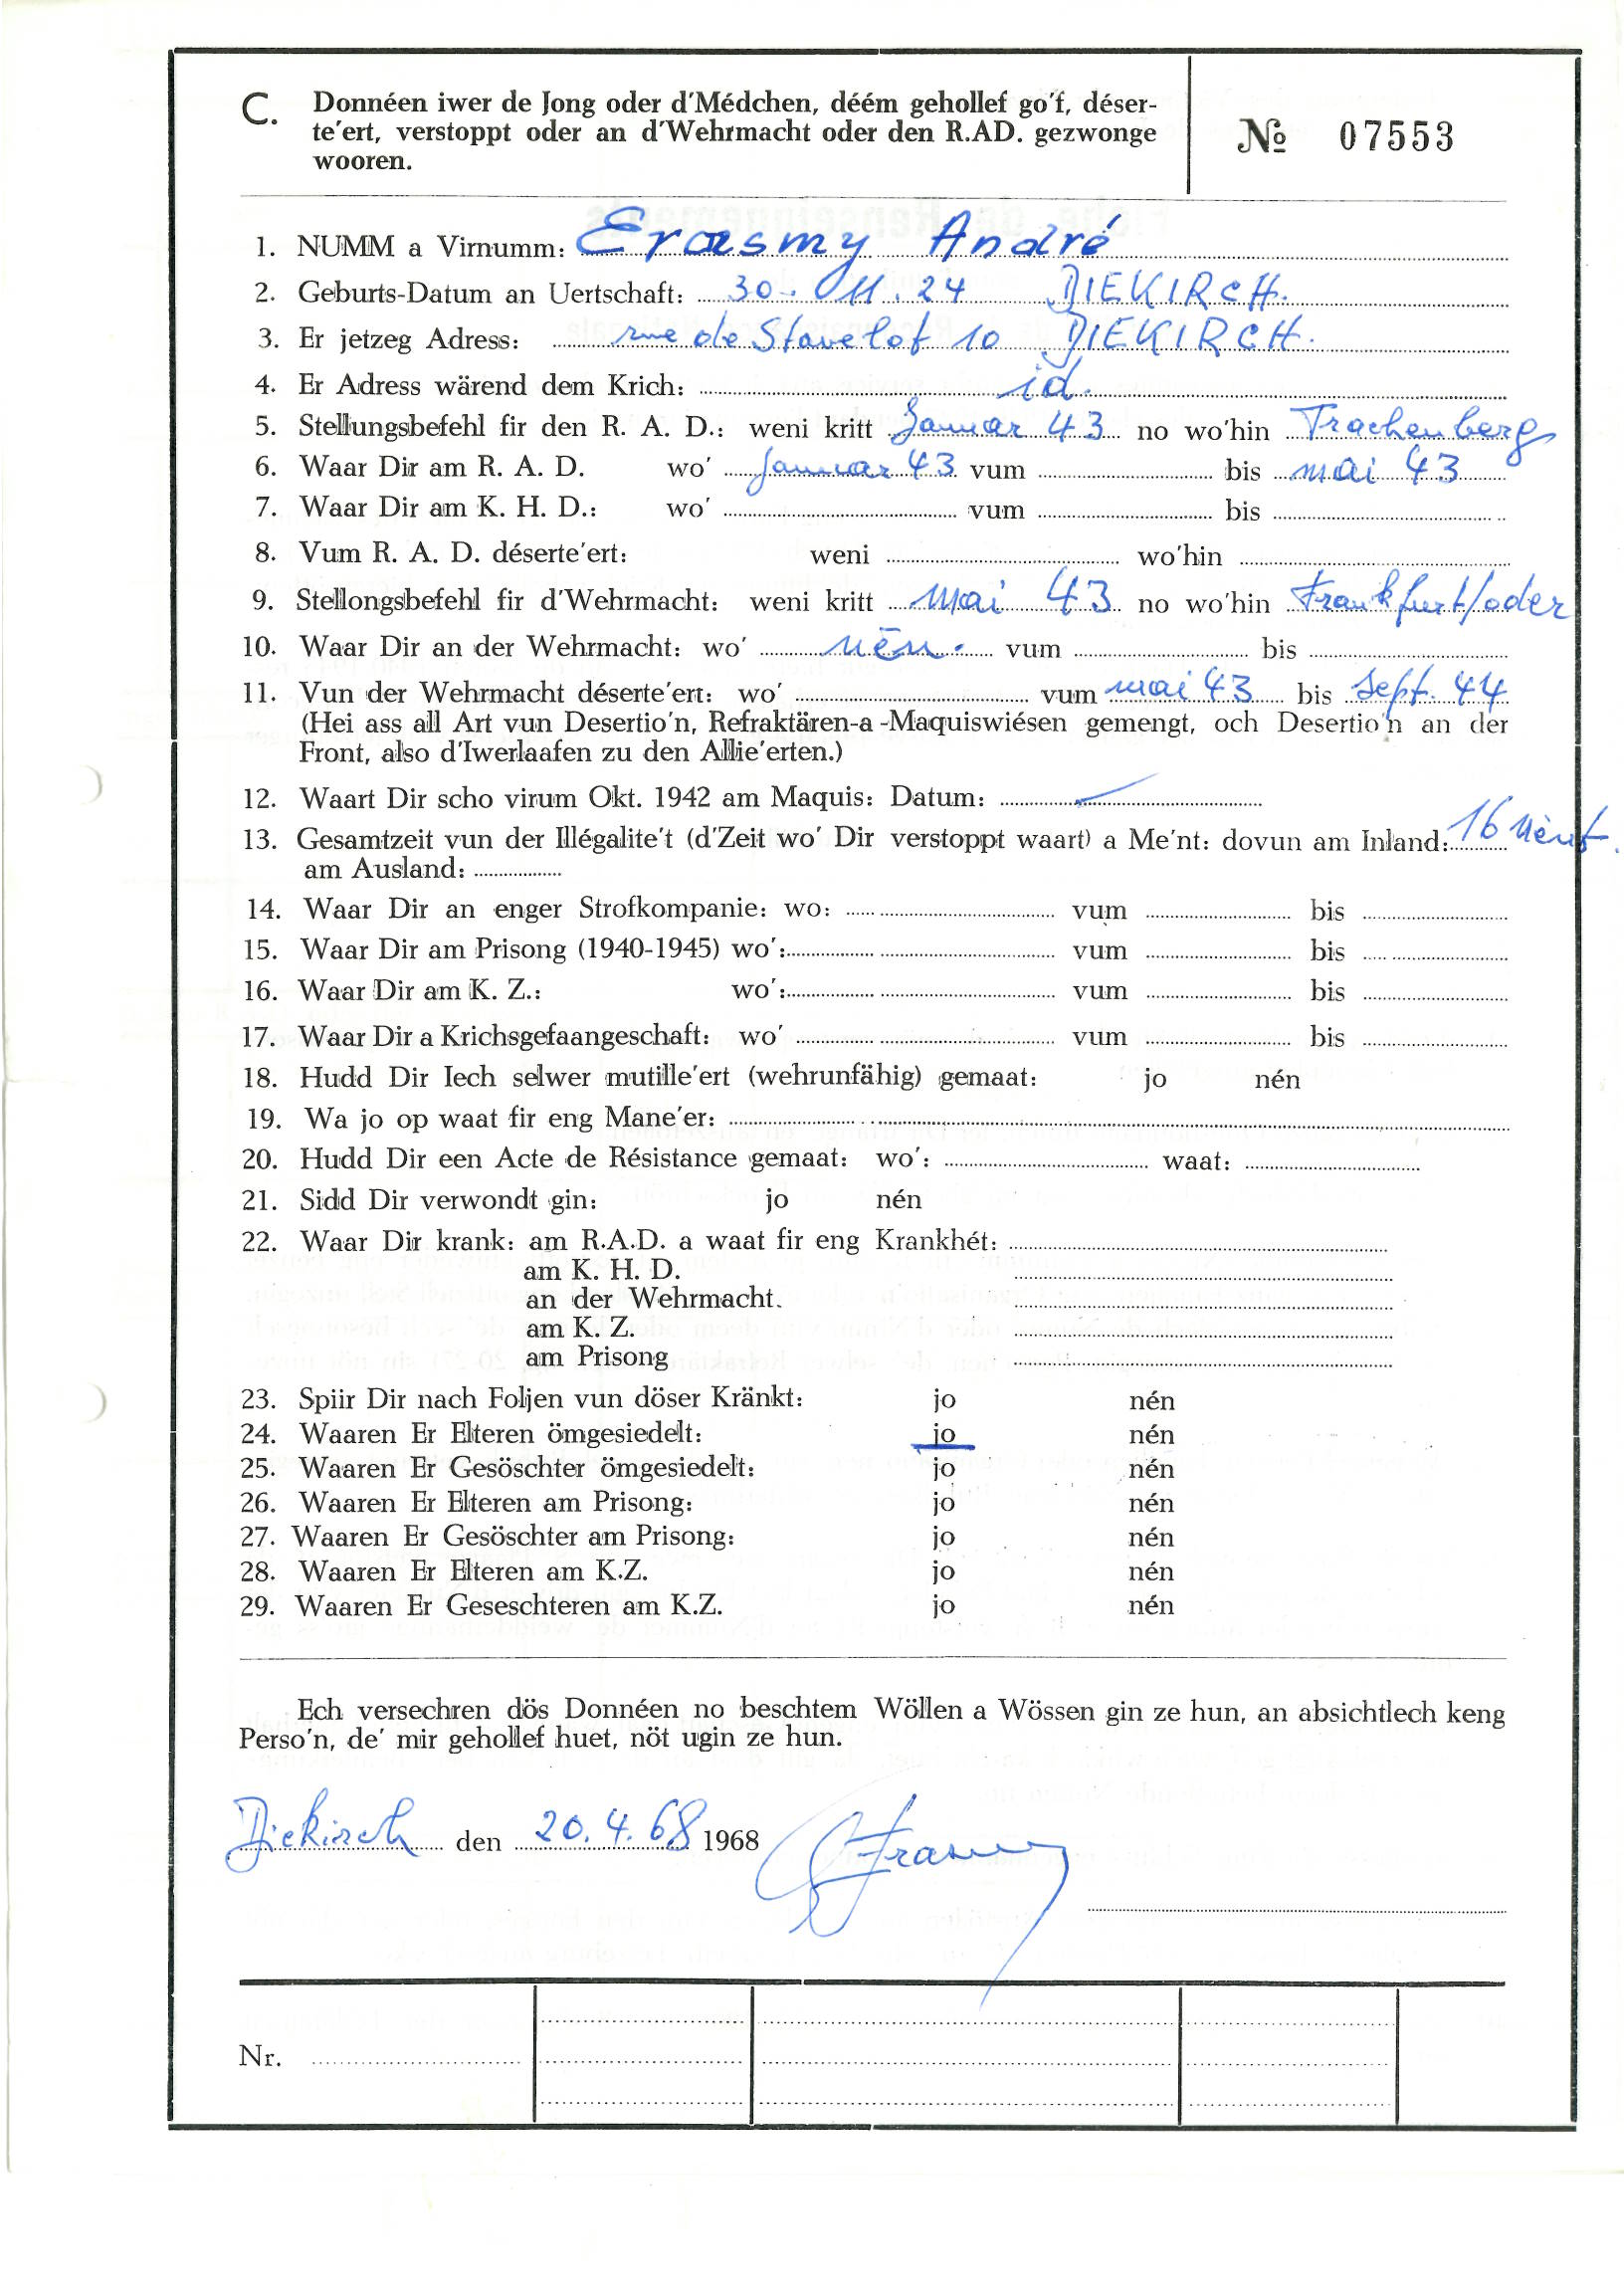 C. Donnéen iwer de Jong oder d'Médchen, déém gehollef go'f, déser-
te'ert, verstoppt oder an d'Wehrmacht oder den R.AD. gezwonge
wooren.
№ 07553
1. NUMM a Virnumm: Erasmy André
2. Geburts-Datum an Uertschaft: 30. 11. 24 DIEKIRCH.
3. Er jetzeg Adress: rue de Stavelot 10 DIEKIRCH.
4. Er Adress wärend dem Krich: id.
5. Stellungsbefehl fir den R. A. D.: weni kritt Januar 43 no wo'hin Trachenberg
6. Waar Dir am R. A. D. wo' Januar 43 vum bis mai 43
7. Waar Dir am K. H. D.: wo' vum bis
8. Vum R. A. D. déserte'ert: weni wo'hin
9. Stellongsbefehl fir d'Wehrmacht: weni kritt mai 43 no wo'hin Frankfurt/oder
10. Waar Dir an der Wehrmacht: wo' nén. vum bis
11. Vun der Wehrmacht déserte'ert: wo' vum mai 43 bis Sept. 44
(Hei ass all Art vun Desertio'n, Refraktären-a -Maquiswiésen gemengt, och Desertio'n an der
Front, also d'Iwerlaafen zu den Allie'erten.)
12. Waart Dir scho virum Okt. 1942 am Maquis: Datum:
13. Gesamtzeit vun der Illégalite't (d'Zeit wo' Dir verstoppt waart) a Me'nt: dovun am Inland: 16 Ment.
am Ausland:
14. Waar Dir an enger Strofkompanie: wo: vum bis
15. Waar Dir am Prisong (1940-1945) wo': vum bis
16. Waar Dir am K. Z.: wo': vum bis
17. Waar Dir a Krichsgefaangeschaft: wo' vum bis
18. Hudd Dir Iech selwer mutille'ert (wehrunfähig) gemaat: jo nén
19. Wa jo op waat fir eng Mane'er:
20. Hudd Dir een Acte de Résistance gemaat: wo': waat:
21. Sidd Dir verwondt gin: jo nén
22. Waar Dir krank: am R.A.D. a waat fir eng Krankhét:
am K. H. D.
an der Wehrmacht.
am K. Z.
am Prisong
23. Spiir Dir nach Foljen vun döser Kränkt: jo nén
24. Waaren Er Elteren ömgesiedelt: jo nén
25. Waaren Er Gesöschter ömgesiedelt: jo nén
26. Waaren Er Elteren am Prisong: jo nén
27. Waaren Er Gesöschter am Prisong: jo nén
28. Waaren Er Elteren am K.Z. jo nén
29. Waaren Er Geseschteren am K.Z. jo nén
Ech versechren dös Donnéen no beschtem Wöllen a Wössen gin ze hun, an absichtlech keng
Perso'n, de' mir gehollef huet, nöt ugin ze hun.
Diekirch den 20.4.68 1968 Erasmy
Nr.